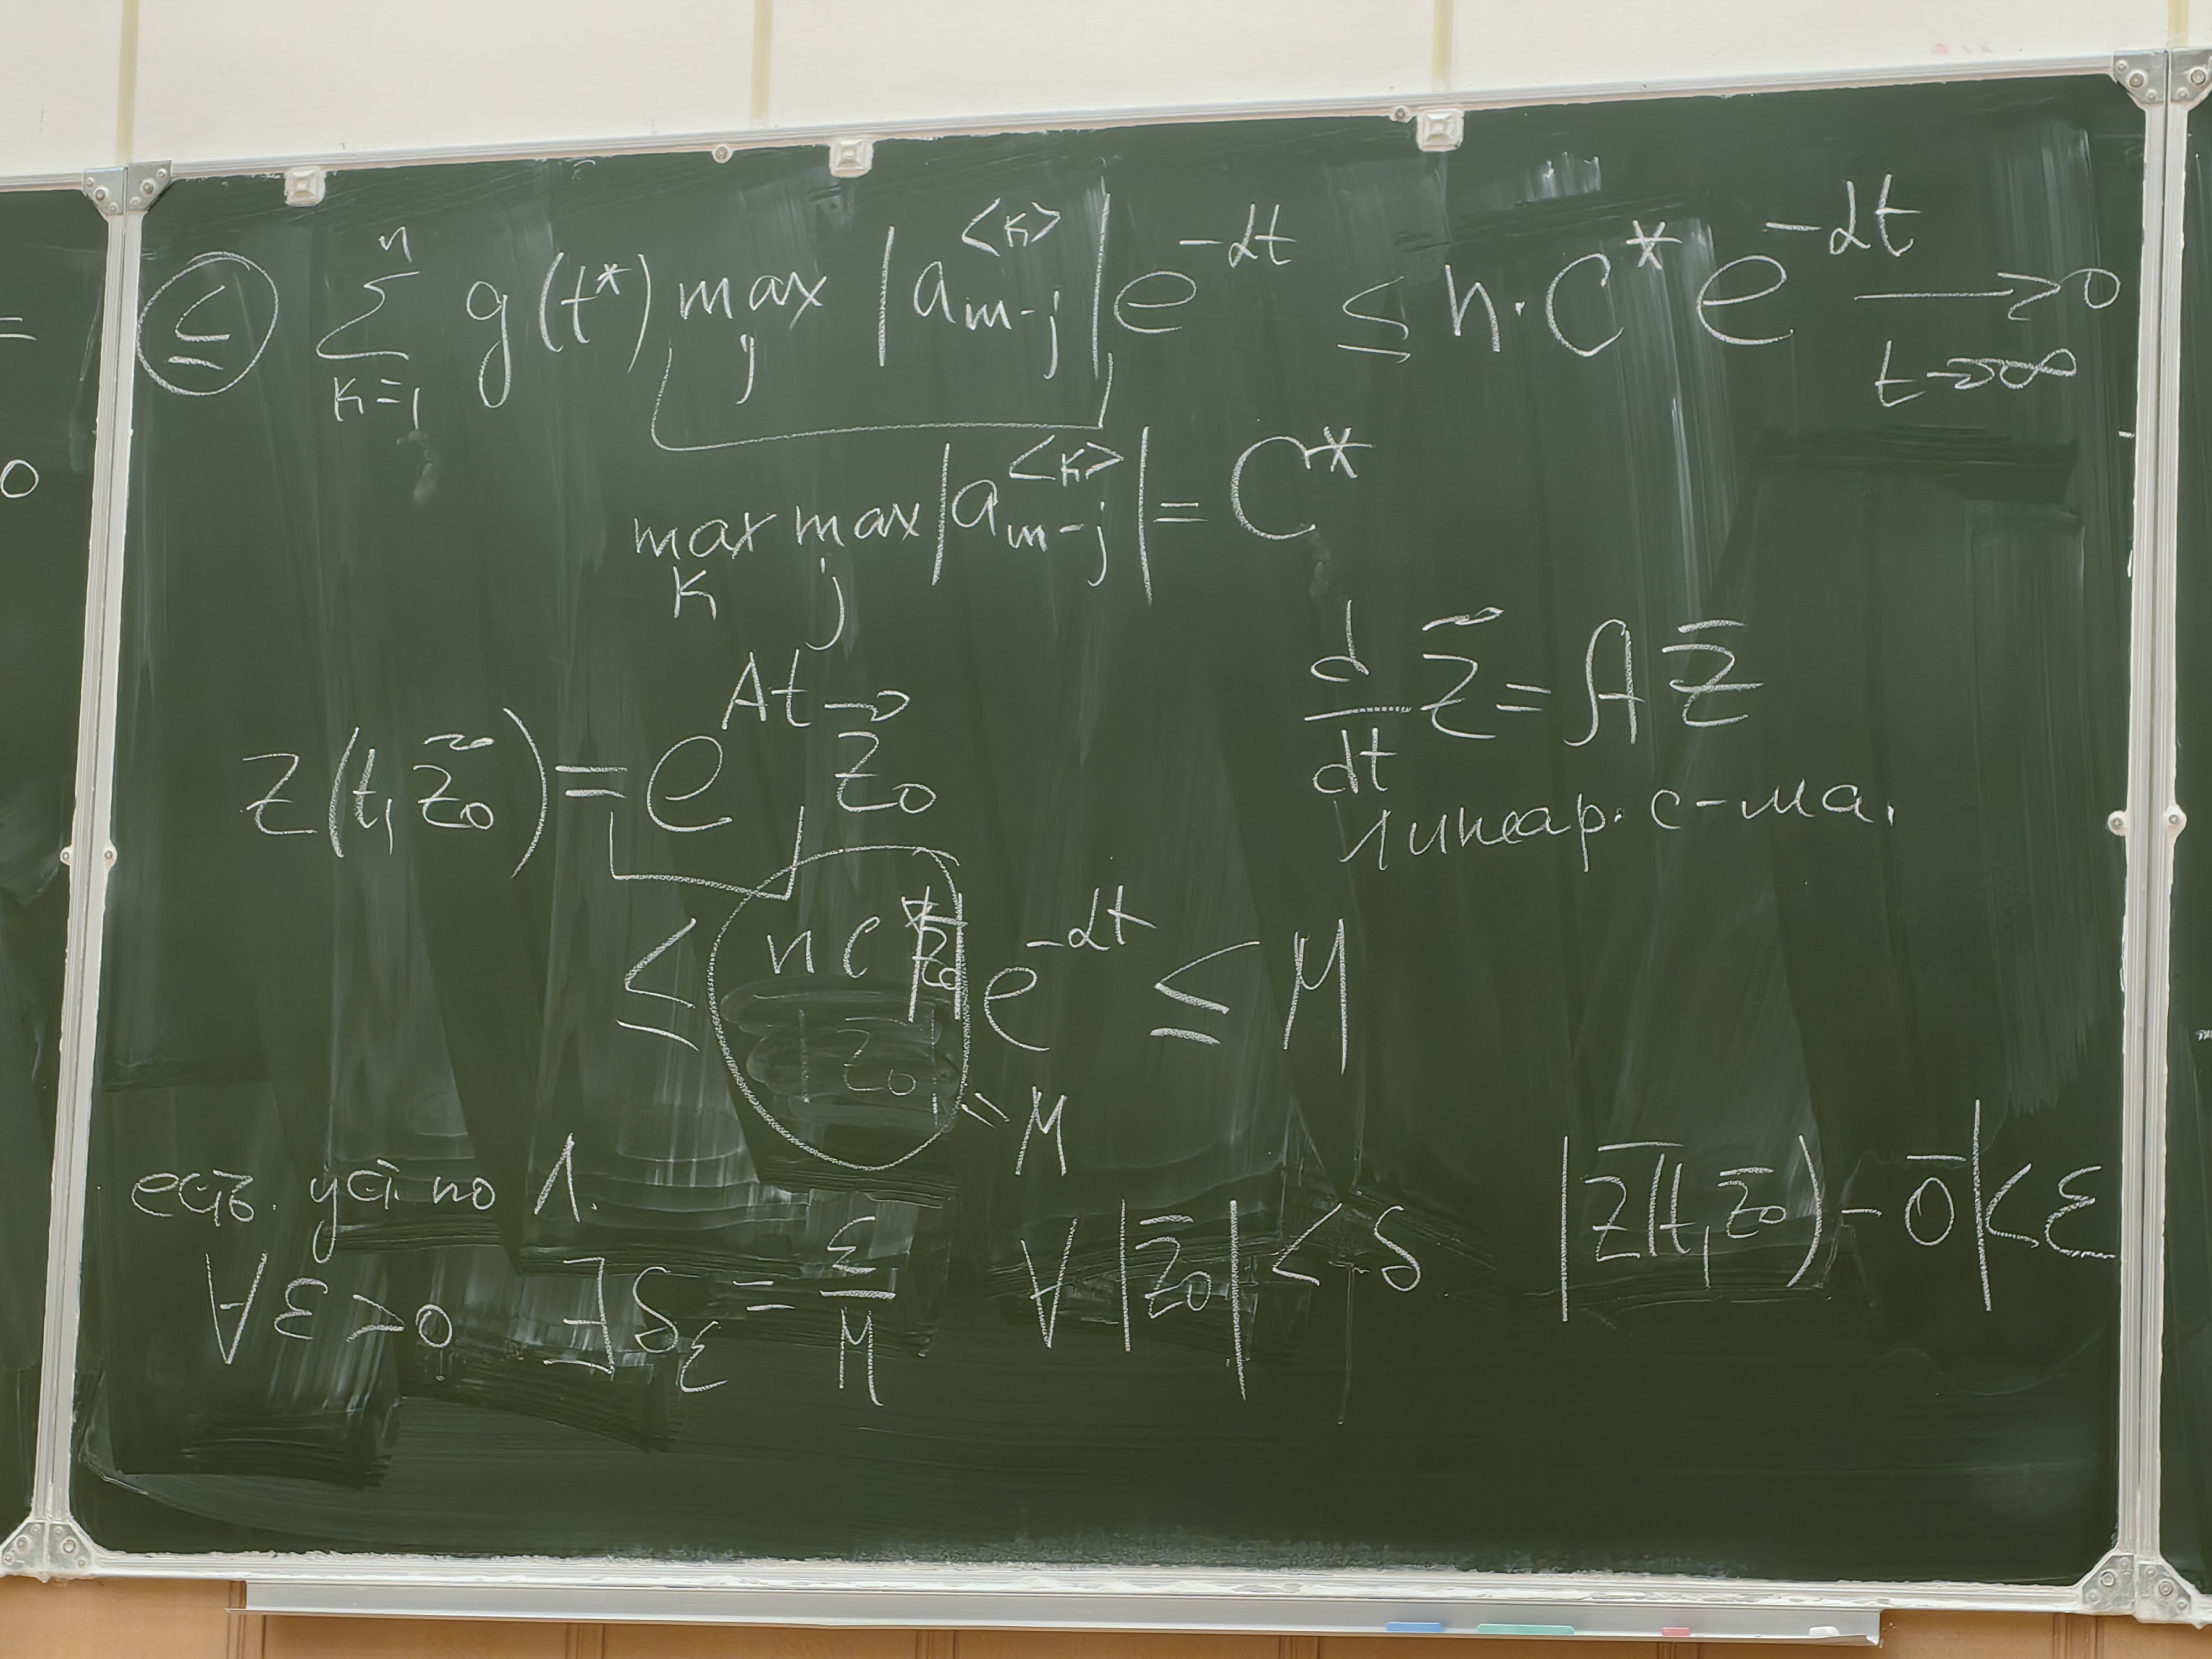 ≤ ∑_{k=1}^{n} g(t*) max_j |a_{m-j}^{<k>}| e^{-αt} ≤ n·C* e^{-αt} → 0, t→∞
max_k max_j |a_{m-j}^{<k>}| = C*
d/dt z⃗ = A z̄
линеар. с-ма.
z(t, z⃗₀) = e^{At} z⃗₀
≤ nc* |z̄₀| e^{-αt} ≤ M
= M
есть. уст. по Λ.
∀ε>0 ∃δ_ε = ε/M ∀|z̄₀| < δ |z̄(t, z̄₀) - 0̄| < ε